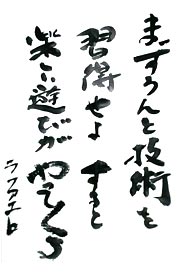 まずうんと技術を
習得せよ すると
楽しい遊びが
やってくる
ラファエロ